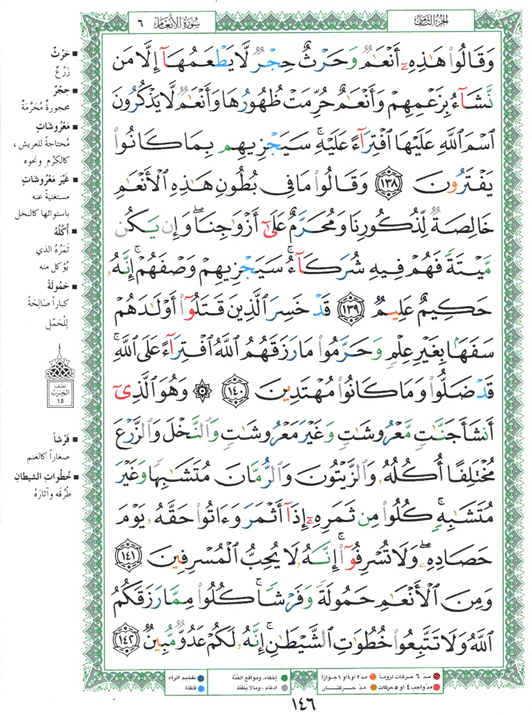 الجزء الثامن
سورة الأنعام
٦
وَقَالُوا۟ هَـٰذِهِۦٓ أَنْعَـٰمٌ وَحَرْثٌ حِجْرٌ لَّا يَطْعَمُهَآ إِلَّا مَن
نَّشَآءُ بِزَعْمِهِمْ وَأَنْعَـٰمٌ حُرِّمَتْ ظُهُورُهَا وَأَنْعَـٰمٌ لَّا يَذْكُرُونَ
ٱسْمَ ٱللَّهِ عَلَيْهَا ٱفْتِرَآءً عَلَيْهِ ۚ سَيَجْزِيهِم بِمَا كَانُوا۟
يَفْتَرُونَ ١٣٨ وَقَالُوا۟ مَا فِى بُطُونِ هَـٰذِهِ ٱلْأَنْعَـٰمِ
خَالِصَةٌ لِّذُكُورِنَا وَمُحَرَّمٌ عَلَىٰٓ أَزْوَٰجِنَا ۖ وَإِن يَكُن
مَّيْتَةً فَهُمْ فِيهِ شُرَكَآءُ ۚ سَيَجْزِيهِمْ وَصْفَهُمْ ۚ إِنَّهُۥ
حَكِيمٌ عَلِيمٌ ١٣٩ قَدْ خَسِرَ ٱلَّذِينَ قَتَلُوٓا۟ أَوْلَـٰدَهُمْ
سَفَهًۢا بِغَيْرِ عِلْمٍ وَحَرَّمُوا۟ مَا رَزَقَهُمُ ٱللَّهُ ٱفْتِرَآءً عَلَى ٱللَّهِ ۚ
قَدْ ضَلُّوا۟ وَمَا كَانُوا۟ مُهْتَدِينَ ١٤٠ ۞ وَهُوَ ٱلَّذِىٓ
أَنشَأَ جَنَّـٰتٍ مَّعْرُوشَـٰتٍ وَغَيْرَ مَعْرُوشَـٰتٍ وَٱلنَّخْلَ وَٱلزَّرْعَ
مُخْتَلِفًا أُكُلُهُۥ وَٱلزَّيْتُونَ وَٱلرُّمَّانَ مُتَشَـٰبِهًا وَغَيْرَ
مُتَشَـٰبِهٍ ۚ كُلُوا۟ مِن ثَمَرِهِۦٓ إِذَآ أَثْمَرَ وَءَاتُوا۟ حَقَّهُۥ يَوْمَ
حَصَادِهِۦ ۖ وَلَا تُسْرِفُوٓا۟ ۚ إِنَّهُۥ لَا يُحِبُّ ٱلْمُسْرِفِينَ ١٤١
وَمِنَ ٱلْأَنْعَـٰمِ حَمُولَةً وَفَرْشًا ۚ كُلُوا۟ مِمَّا رَزَقَكُمُ
ٱللَّهُ وَلَا تَتَّبِعُوا۟ خُطُوَٰتِ ٱلشَّيْطَـٰنِ ۚ إِنَّهُۥ لَكُمْ عَدُوٌّ مُّبِينٌ ١٤٢
حَرْثٌ
زَرْعٌ
حِجْرٌ
محجورةٌ مُحَرَّمَةٌ
مَعْرُوشَاتٍ
مُحتاجةً للعريش،
كالكَرْم ونحوه
غَيْرَ مَعْرُوشَاتٍ
مستغنيةً عنه
باستوائها كالنخل
أُكُلُهُ
ثَمَرُهُ الذي
يُؤكل منه
حَمُولَةً
كباراً صَالِحَةً
لِلْحَمْل
نصف
الحزب
١٥
فَرْشاً
صغاراً كالغنم
خُطُواتِ الشيطانِ
طُرُقَه وآثارَهُ
مدّ ٦ حركات لزوماً
مدّ ٢ أو ٤ أو ٦ جوازاً
إخفاء، ومواقع الغُنَّة
تفخيم الراء
مدّ واجب ٤ أو ٥ حركات
مدّ حركتان
ادغام، وما لا يُلفظ
قلقلة
١٤٦